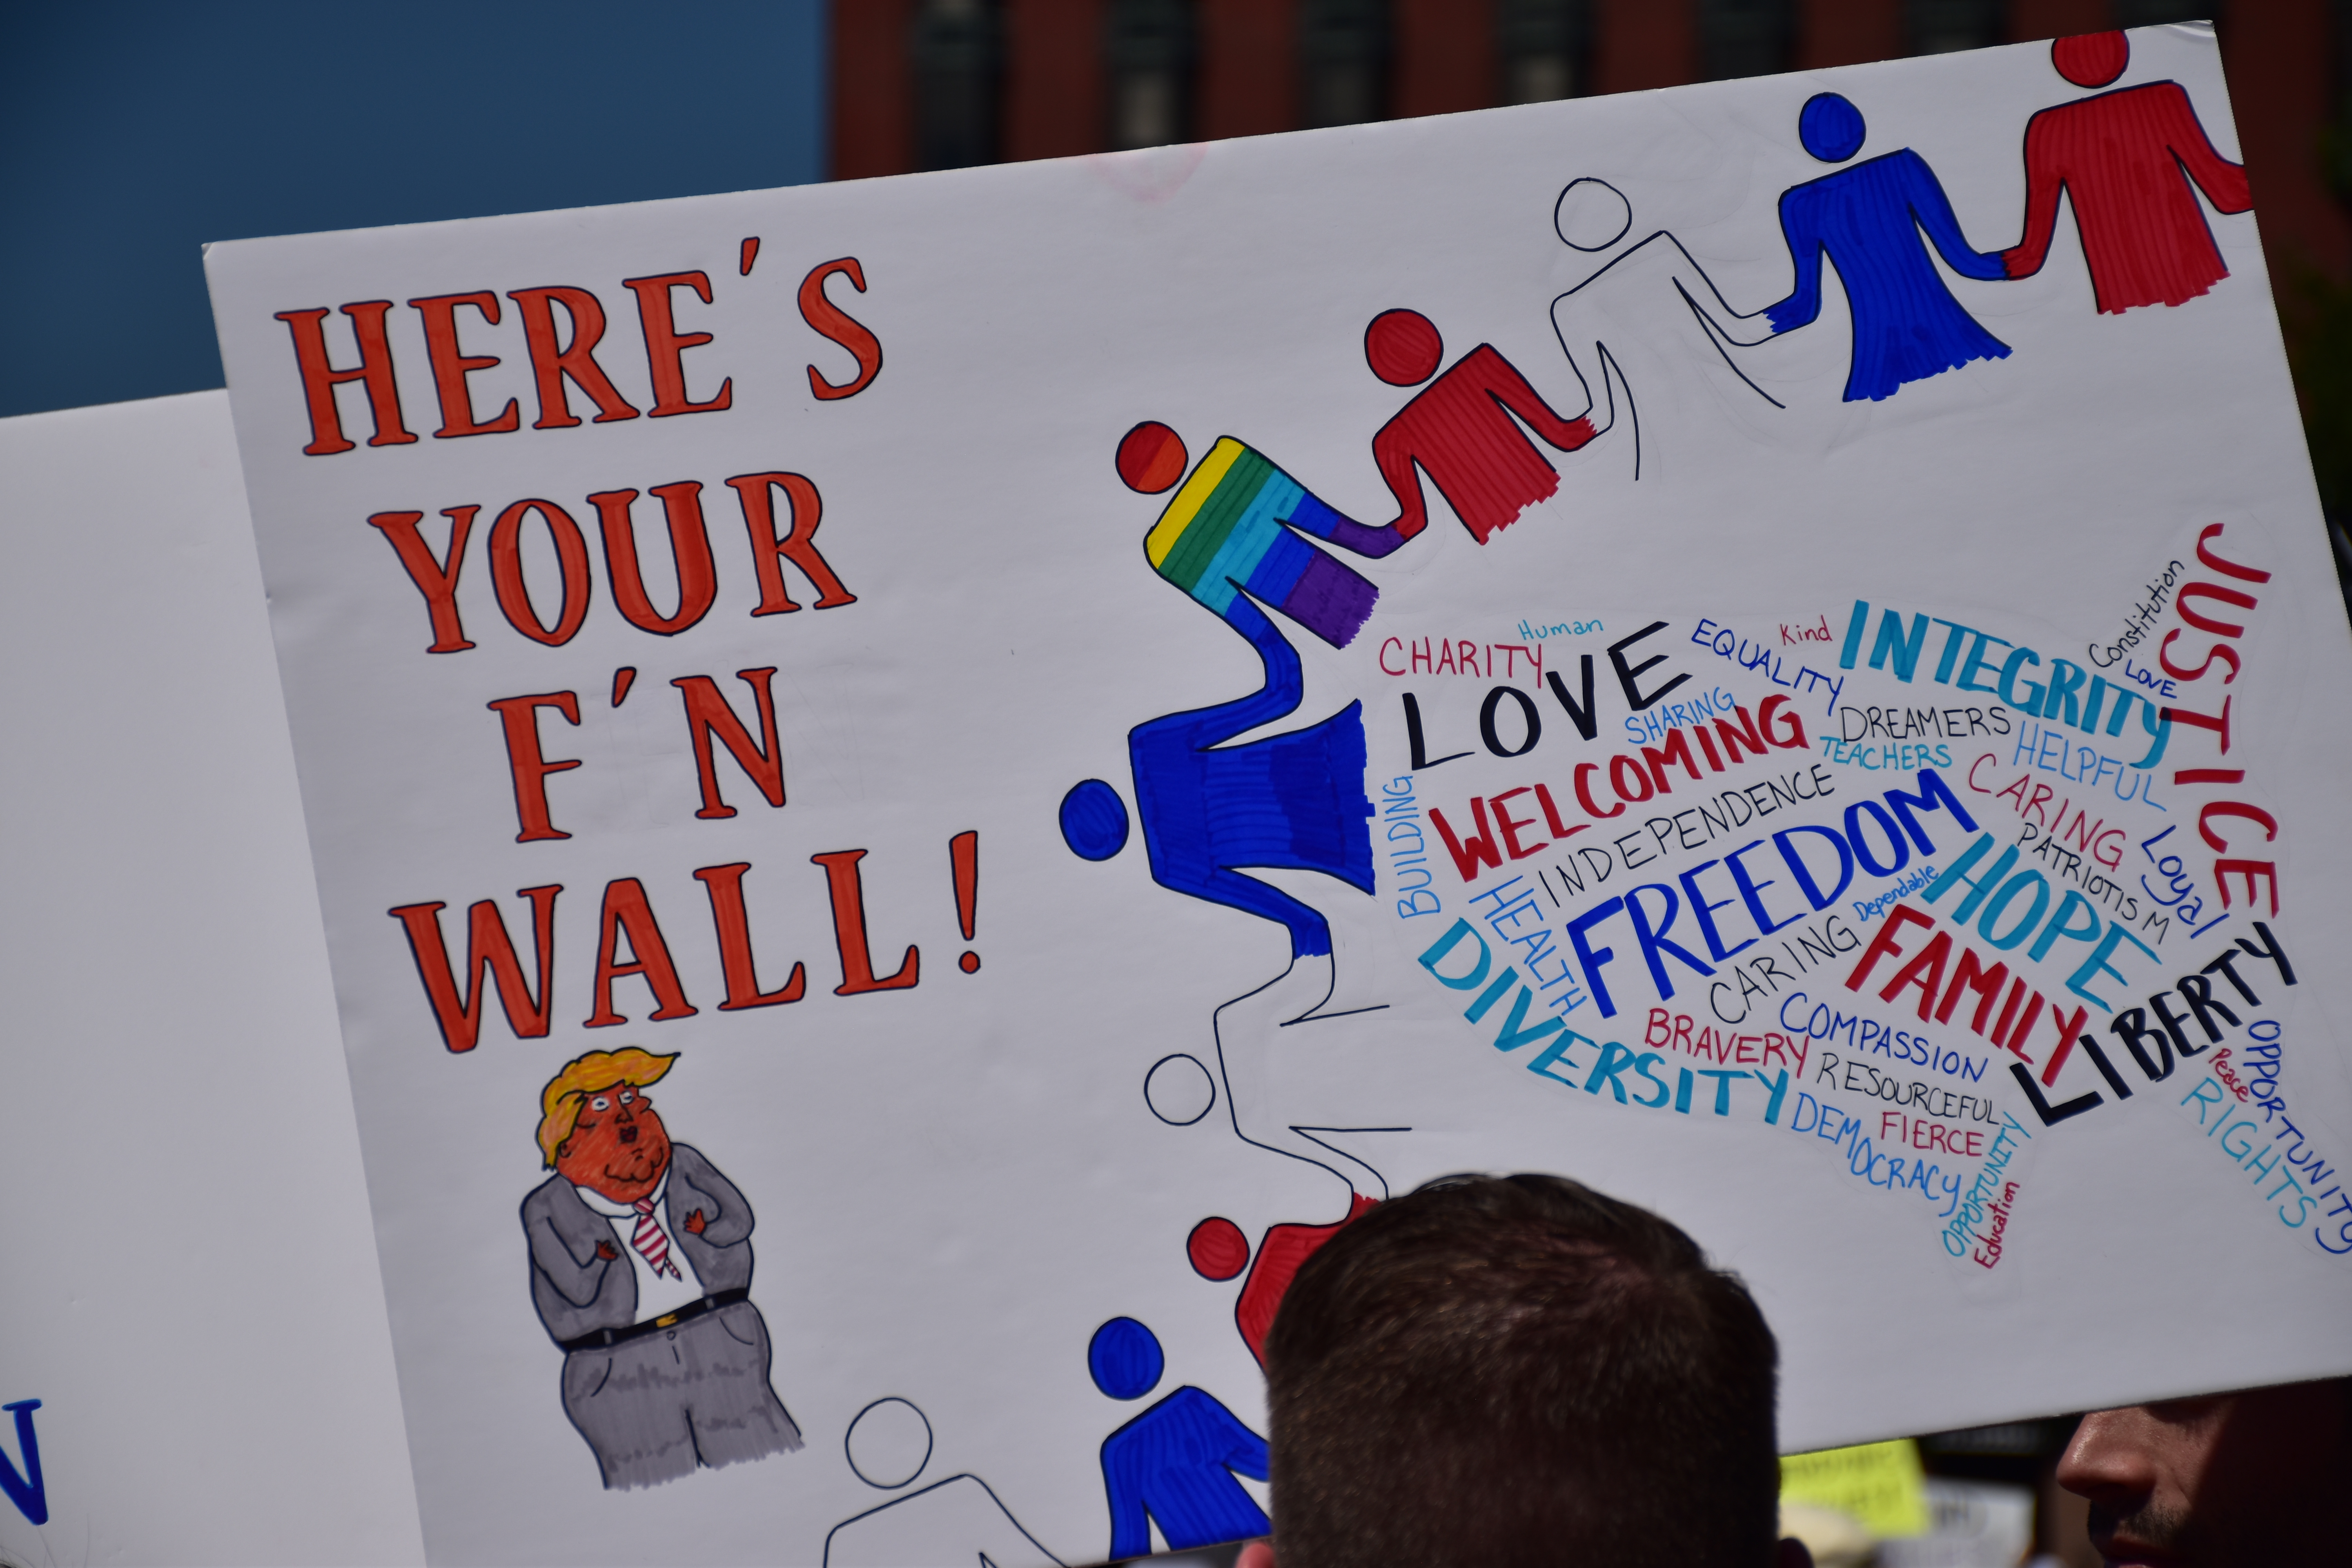 HERE'S
YOUR
F'N
WALL!
JUSTICE
Constitution
LOVE
Human
CHARITY
LOVE
EQUALITY
Kind
INTEGRITY
SHARING
DREAMERS
TEACHERS
HELPFUL
WELCOMING
CARING
BUILDING
INDEPENDENCE
PATRIOTISM
Loyal
HEALTH
FREEDOM
Dependable
HOPE
CARING
FAMILY
DIVERSITY
BRAVERY
COMPASSION
LIBERTY
RESOURCEFUL
DEMOCRACY
FIERCE
OPPORTUNITY
Education
Peace
OPPORTUNITY
RIGHTS